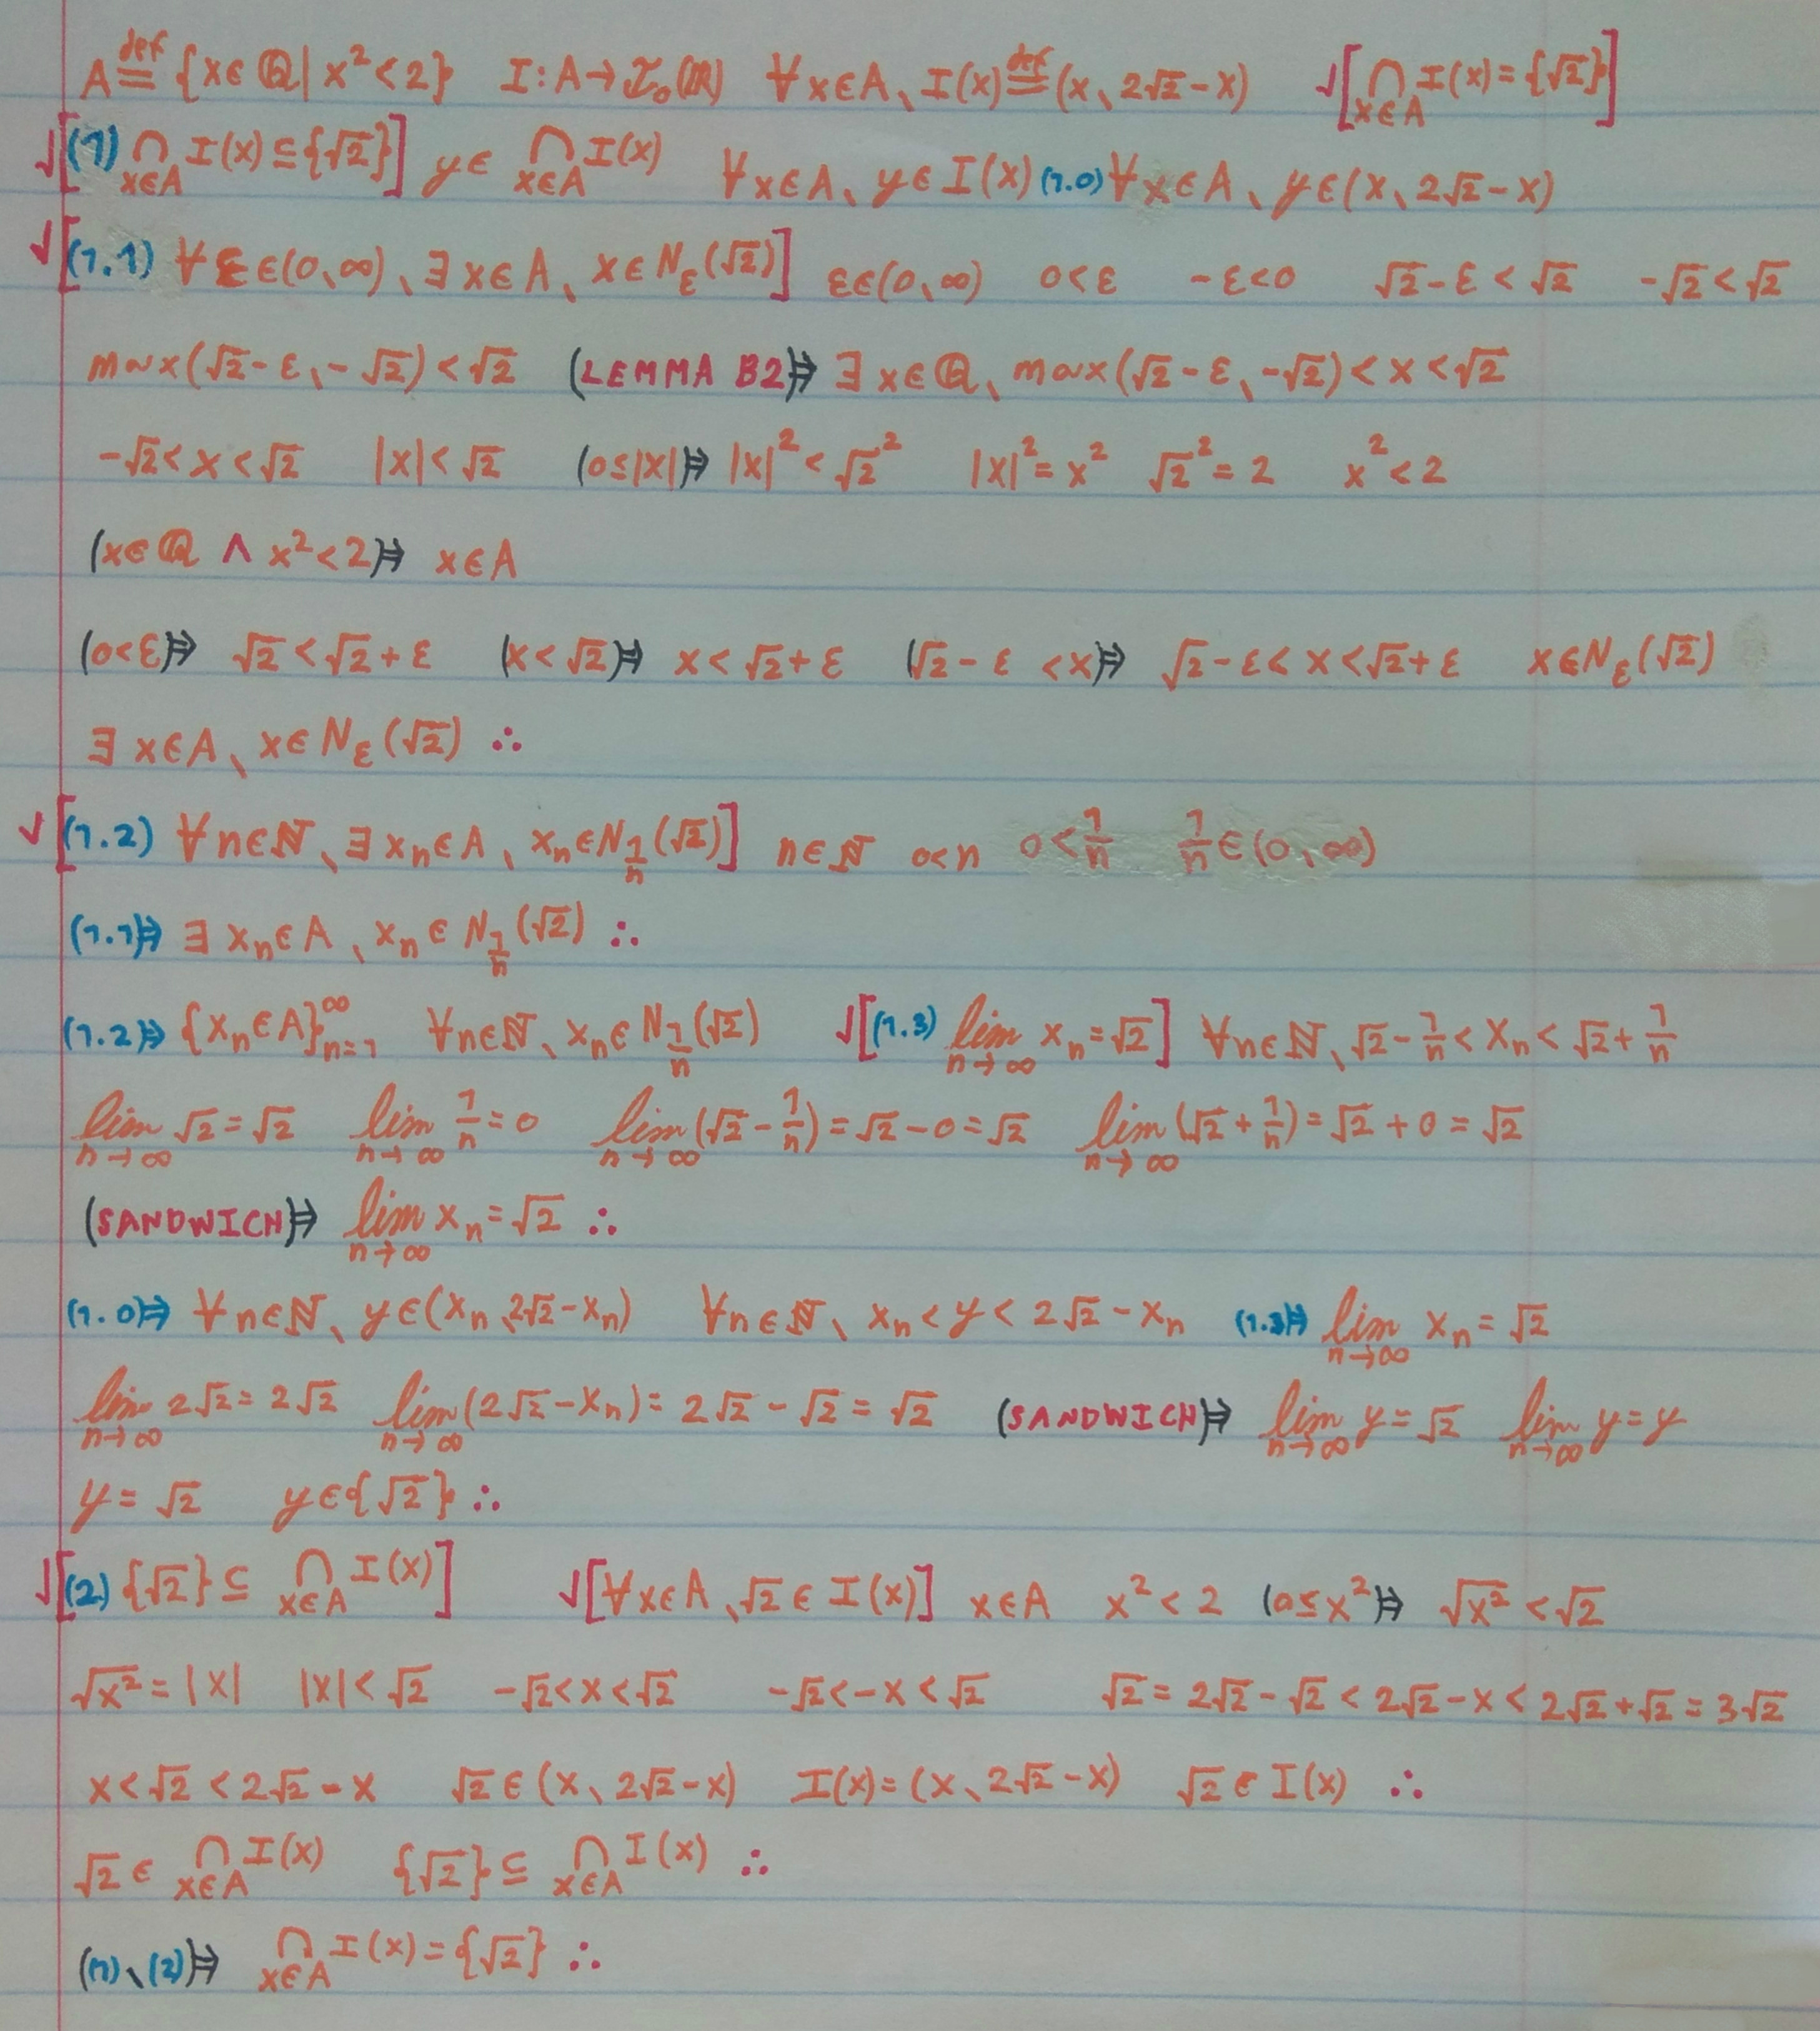 A ≝ {x∈ℚ| x²<2} I:A→ℐ₀(ℝ) ∀x∈A、I(x)≝(x、2√2-x) √[⋂_{x∈A} I(x)={√2}]
√[(1) ⋂_{x∈A} I(x)⊆{√2}] y∈ ⋂_{x∈A} I(x) ∀x∈A、y∈I(x) (1.0) ∀x∈A、y∈(x、2√2-x)
√[(1.1) ∀ε∈(0、∞)、∃x∈A、x∈N_ε(√2)] ε∈(0、∞) 0<ε -ε<0 √2-ε<√2 -√2<√2
max(√2-ε、-√2)<√2 (LEMMA B2)⇒ ∃x∈ℚ、max(√2-ε、-√2)<x<√2
-√2<x<√2 |x|<√2 (0≤|x|)⇒ |x|²<√2² |x|²=x² √2²=2 x²<2
(x∈ℚ ∧ x²<2)⇒ x∈A
(0<ε)⇒ √2<√2+ε (x<√2)⇒ x<√2+ε (√2-ε<x)⇒ √2-ε<x<√2+ε x∈N_ε(√2)
∃x∈A、x∈N_ε(√2) ∴
√[(1.2) ∀n∈ℕ、∃x_n∈A、x_n∈N_{1/n}(√2)] n∈ℕ 0<n 0<1/n 1/n∈(0、∞)
(1.1)⇒ ∃x_n∈A、x_n∈N_{1/n}(√2) ∴
(1.2)⇒ {x_n∈A}_{n=1}^∞ ∀n∈ℕ、x_n∈N_{1/n}(√2) √[(1.3) lim_{n→∞} x_n=√2] ∀n∈ℕ、√2-1/n<x_n<√2+1/n
lim_{n→∞} √2=√2 lim_{n→∞} 1/n=0 lim_{n→∞}(√2-1/n)=√2-0=√2 lim_{n→∞}(√2+1/n)=√2+0=√2
(SANDWICH)⇒ lim_{n→∞} x_n=√2 ∴
(1.0)⇒ ∀n∈ℕ、y∈(x_n、2√2-x_n) ∀n∈ℕ、x_n<y<2√2-x_n (1.3)⇒ lim_{n→∞} x_n=√2
lim_{n→∞} 2√2=2√2 lim_{n→∞}(2√2-x_n)=2√2-√2=√2 (SANDWICH)⇒ lim_{n→∞} y=√2 lim_{n→∞} y=y
y=√2 y∈{√2} ∴
√[(2) {√2}⊆ ⋂_{x∈A} I(x)] √[∀x∈A、√2∈I(x)] x∈A x²<2 (0≤x²)⇒ √x²<√2
√x²=|x| |x|<√2 -√2<x<√2 -√2<-x<√2 √2=2√2-√2<2√2-x<2√2+√2=3√2
x<√2<2√2-x √2∈(x、2√2-x) I(x)=(x、2√2-x) √2∈I(x) ∴
√2∈ ⋂_{x∈A} I(x) {√2}⊆ ⋂_{x∈A} I(x) ∴
(1)、(2)⇒ ⋂_{x∈A} I(x)={√2} ∴